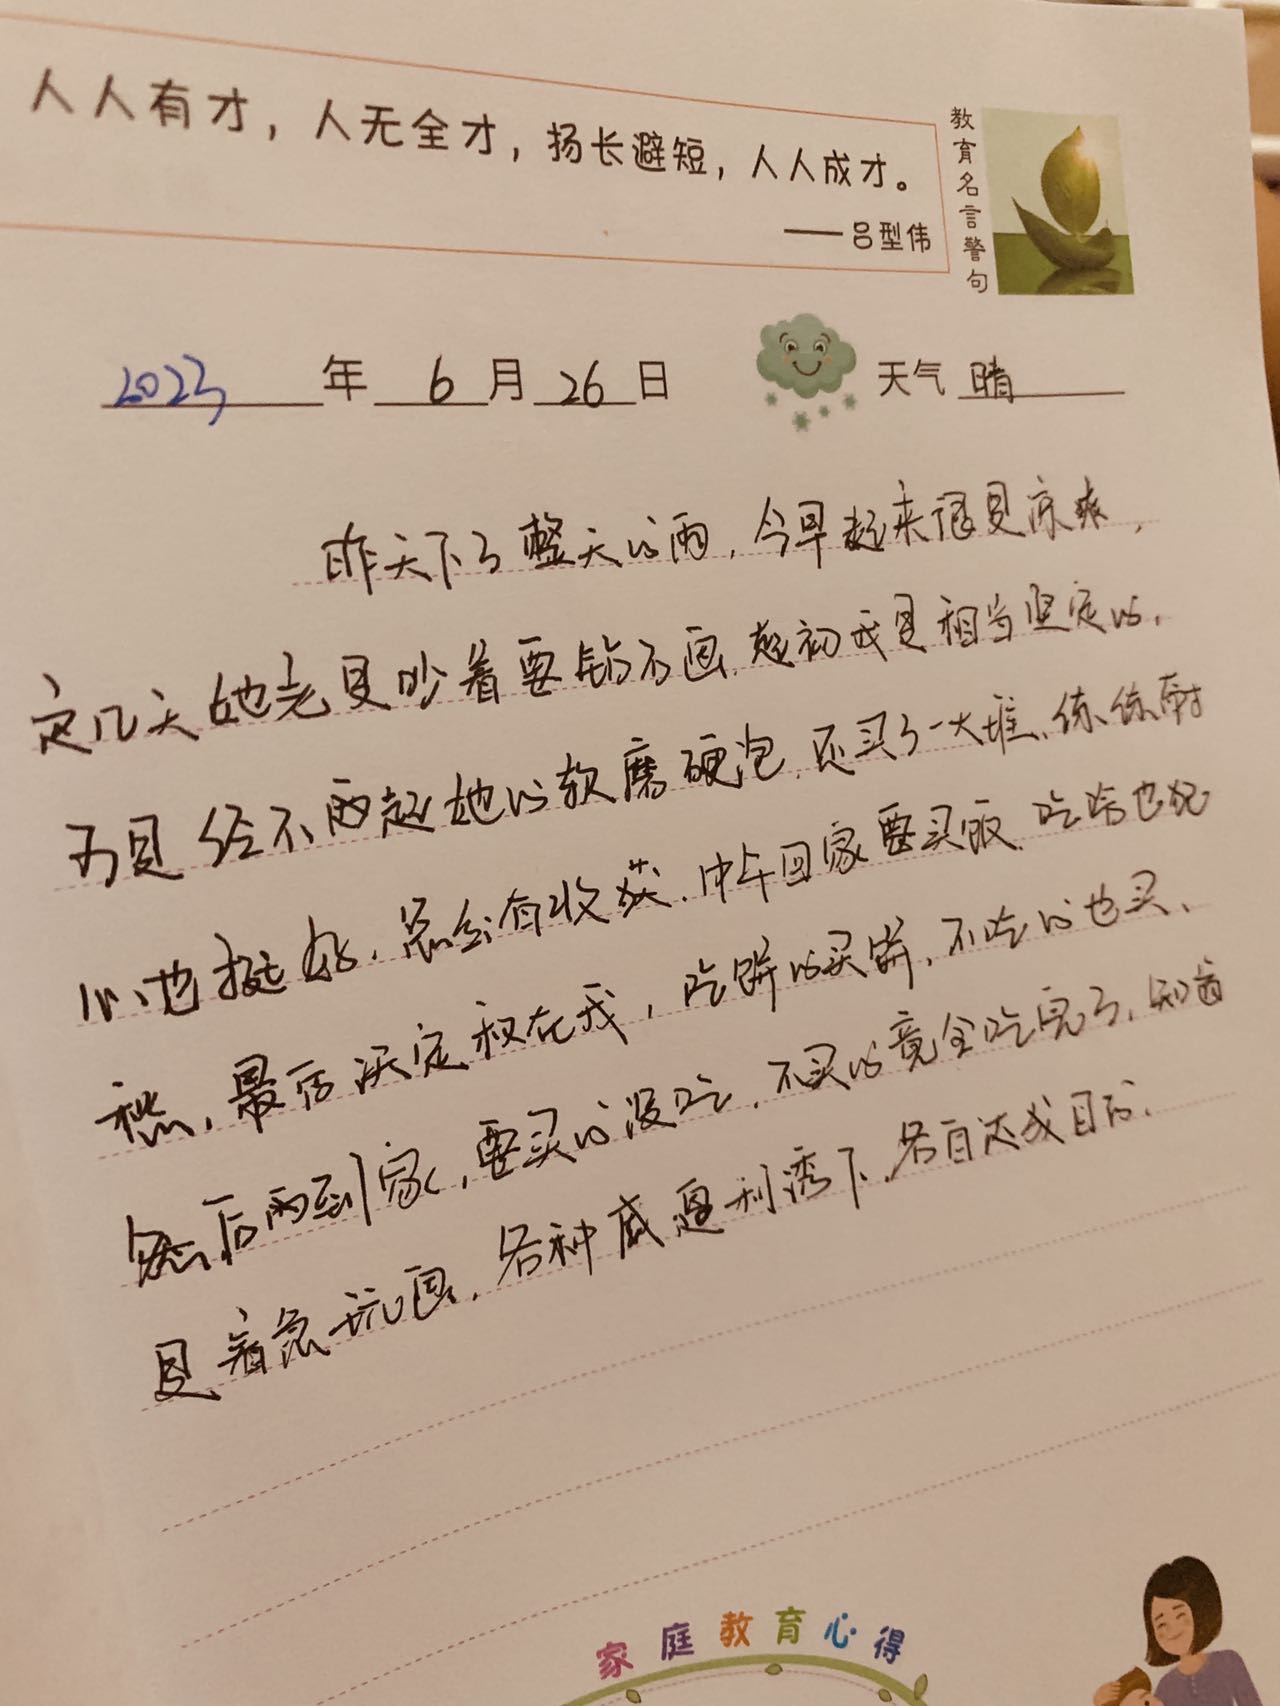 人人有才，人无全才，扬长避短，人人成才。
——吕型伟
教育名言警句
2023年 6月26日 天气 晴
昨天下了整天的雨，今早起来很是凉爽，
这几天她老是吵着要钻石画，起初我是相当坚定的，
可是经不住她的软磨硬泡，还买了一大堆，练练耐
心也挺好，总会有收获，中午回家要买饭，吃啥也犯
愁，最后决定权在我，吃饼的买饼，不吃的也买，
然后到家，要买的没吃，不买的竟全吃完了，知道
是着急玩画，各种威逼利诱下，各自达成目的，
家庭教育心得